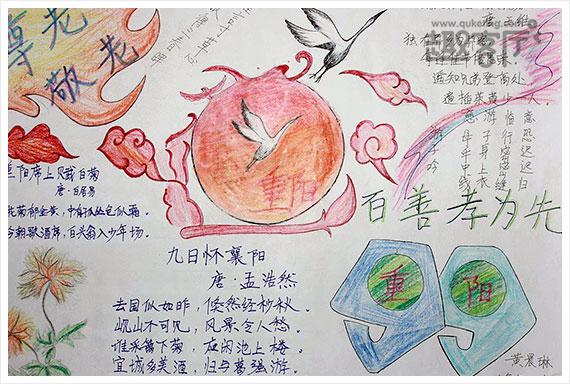 尊老
敬老
www.quke
趣客厅
唐 王维
独在
遥知兄弟登高处
遍插茱萸少一人
游子吟
慈母手中线
游子身上衣
临行密密缝
意恐迟迟归
重阳
百善孝为先
重阳席上赋白菊
唐·白居易
花菊郁金黄,中有孤丛色似霜。
今朝歌酒席,白头翁入少年场。
九日怀襄阳
唐·孟浩然
去国似如昨,倏然经杪秋。
岘山不可见,风景令人愁。
谁采篱下菊,应闲池上楼。
宜城多美酒,归与葛强游。
重 阳
黄晨琳